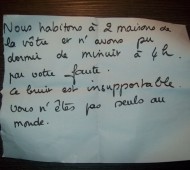 Nous habitons à 2 maisons de
la vôtre et n'avons pu
dormir de minuit à 4h.
par votre faute.
Ce bruit est insupportable
vous n'êtes pas seuls au
monde.